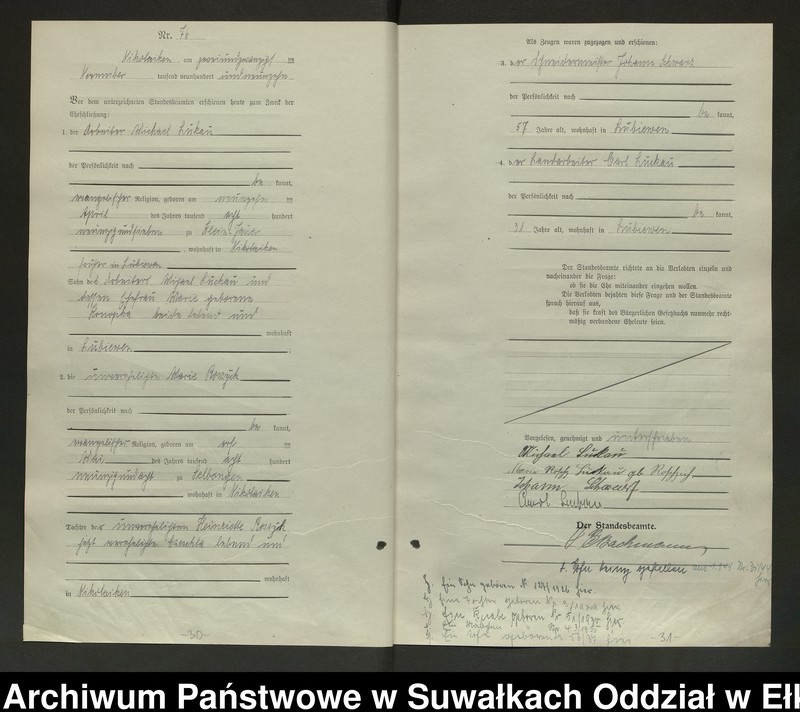 Nr. 76
Nikolaiken am zweiundzwanzigs ten
November tausend neunhundert undneunzehn
Vor dem unterzeichneten Standesbeamten erschienen heute zum Zweck der
Eheschließung:
1. der Arbeiter Michael Lukau
der Persönlichkeit nach
be kannt,
evangelischer Religion, geboren am neunzehn ten
April des Jahres tausend acht hundert
neunzigundsieben zu
, wohnhaft in Nikolaiken
früher in Lubiewen
Sohn des Arbeiters Michael Luckau und
dessen Ehefrau Marie geborene
Konopka beide lebend und
wohnhaft
in Lubiewen ;
2. die unverehelichte Marie
der Persönlichkeit nach
be kannt,
evangelischer Religion, geboren am ten
des Jahres tausend acht hundert
neunzigundacht zu Selbongen
, wohnhaft in Nikolaiken
Tochter der unverehelichten Henriette
jetzt verehelichte lebend und
wohnhaft
in Nikolaiken
-30-
Als Zeugen waren zugezogen und erschienen:
3. der Schneidermeister Johann Schwarz
der Persönlichkeit nach
be kannt,
57 Jahre alt, wohnhaft in Lubiewen
4. der Landarbeiter Carl Luckau
der Persönlichkeit nach
be kannt,
31 Jahre alt, wohnhaft in Lubiewen
Der Standesbeamte richtete an die Verlobten einzeln und
nacheinander die Frage:
ob sie die Ehe miteinander eingehen wollen.
Die Verlobten bejahten diese Frage und der Standesbeamte
sprach hierauf aus,
daß sie kraft des Bürgerlichen Gesetzbuchs nunmehr recht-
mäßig verbundene Eheleute seien.
Vorgelesen, genehmigt und unterschrieben
Michael Lukau
Marie Lukau gb
Johann Schwarz
Der Standesbeamte.
Ein Sohn geboren N. 127/1926 hier.
Eine Tochter geboren Nr. hier
geboren Nr. 51/ hier
geboren hier
-31-
Archiwum Państwowe w Suwałkach Oddział w Ełk